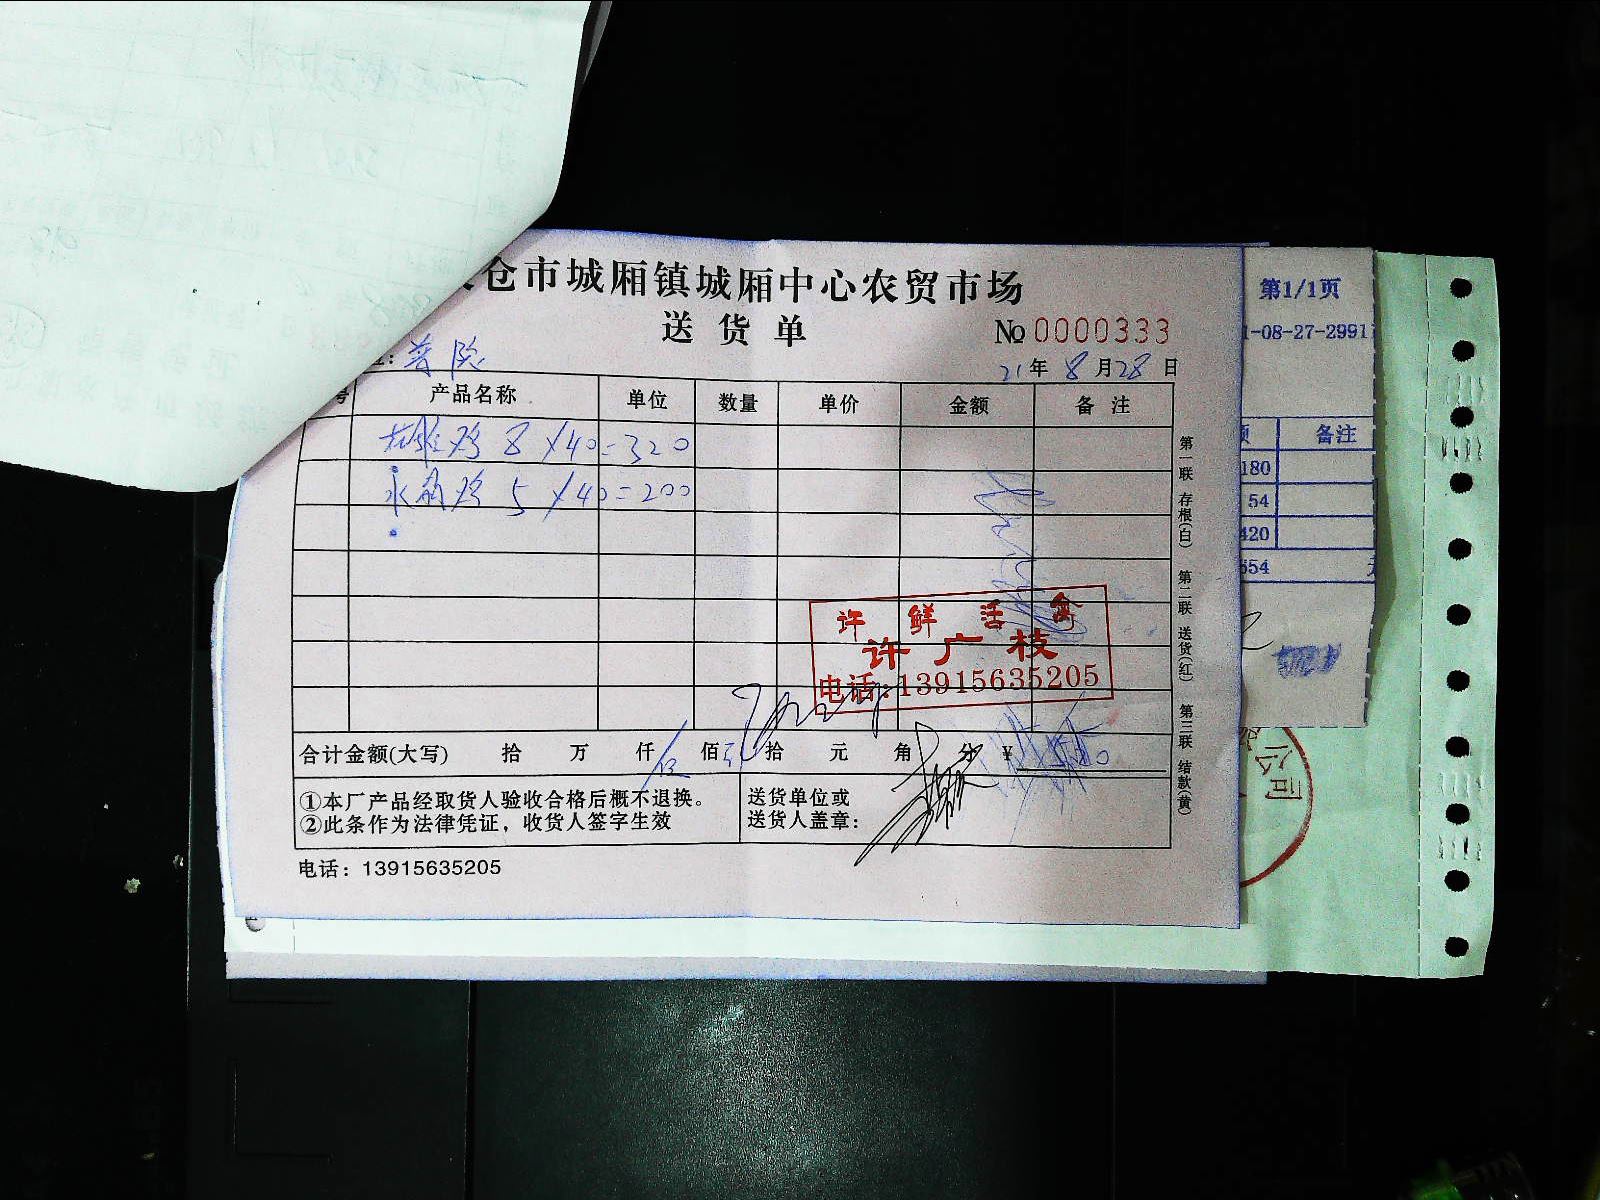 仓市城厢镇城厢中心农贸市场
送货单
No 0000333
21年8月28日
号 产品名称 单位 数量 单价 金额 备注
鸡 8×40=320
鸡 5×40=200
第一联 存根(白) 第二联 送货(红) 第三联 结款(黄)
许 鲜 活 禽
许广枝
电话:13915635205
合计金额(大写) 拾 万 仟 伍 佰 拾 元 角 分 ¥ 520
①本厂产品经取货人验收合格后概不退换。
②此条作为法律凭证，收货人签字生效
送货单位或
送货人盖章：
电话：13915635205
第1/1页
1-08-27-2991
备注
180
54
420
654
公司